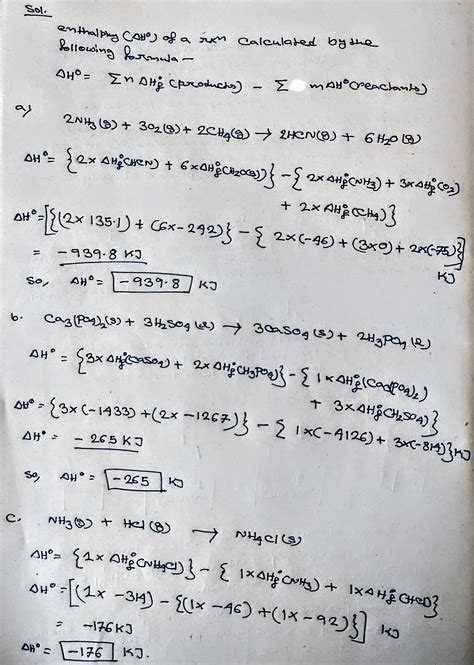 Sol.
enthalpy (ΔH°) of a rxn calculated by the
following formula -
ΔH° = Σn ΔH°f (products) - Σ mΔH°(reactants)
a)
2NH3(g) + 3O2(g) + 2CH4(g) → 2HCN(g) + 6H2O(g)
ΔH° = {2x ΔH°f(HCN) + 6xΔH°f(H2O(g))} - {2xΔH°f(NH3) + 3xΔH°f(O2)
+ 2xΔH°f(CH4)}
ΔH° = [{(2x 135.1) + (6x -242)} - {2x(-46) + (3x0) + 2x(-75)}]
KJ
= -939.8 KJ
So, ΔH° = -939.8 KJ
b. Ca3(PO4)2(s) + 3H2SO4(l) → 3CaSO4(s) + 2H3PO4(l)
ΔH° = {3xΔH°f(CaSO4) + 2xΔH°f(H3PO4)} - {1xΔH°f(Ca3(PO4)2)
+ 3xΔH°f(H2SO4)}
ΔH° = {3x(-1433) + (2x -1267)} - {1x(-4126) + 3x(-814)} KJ
ΔH° = -265 KJ
So, ΔH° = -265 KJ
C. NH3(g) + HCl(g) → NH4Cl(s)
ΔH° = {1x ΔH°f(NH4Cl)} - {1xΔH°f(NH3) + 1xΔH°f(HCl)}
ΔH° = [(1x -314) - {(1x -46) + (1x -92)}] KJ
= -176 KJ
ΔH° = -176 KJ.